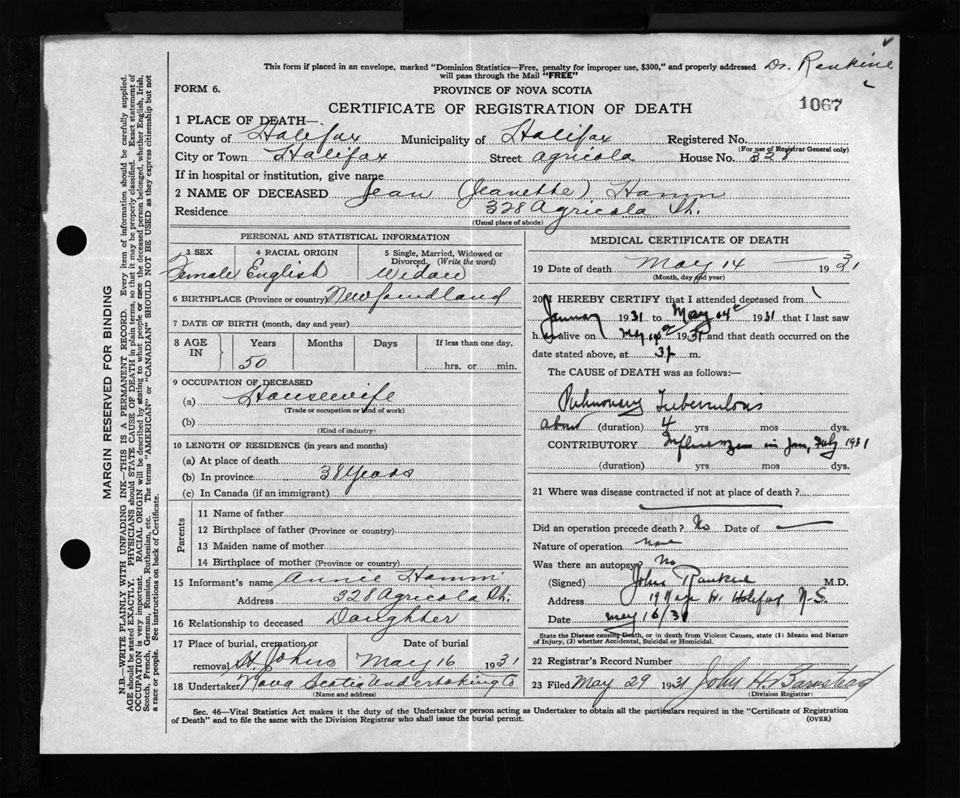 This form if placed in an envelope, marked "Dominion Statistics—Free, penalty for improper use, $300," and properly addressed Dr. Rankine
will pass through the Mail "FREE"
FORM 6.
PROVINCE OF NOVA SCOTIA
1067
CERTIFICATE OF REGISTRATION OF DEATH
1 PLACE OF DEATH—
County of Halifax Municipality of Halifax Registered No.
(For use of Registrar General only)
City or Town Halifax Street Agricola House No. 328
If in hospital or institution, give name
2 NAME OF DECEASED Jean (Jeanette) Hamm
Residence 328 Agricola St.
(Usual place of abode)
PERSONAL AND STATISTICAL INFORMATION
3 SEX 4 RACIAL ORIGIN 5 Single, Married, Widowed or Divorced. (Write the word)
Female English Widow
6 BIRTHPLACE (Province or country) Newfoundland
7 DATE OF BIRTH (month, day and year)
8 AGE IN Years Months Days If less than one day,
50 hrs. or min.
9 OCCUPATION OF DECEASED
(a) Housewife
(Trade or occupation or kind of work)
(b)
(Kind of industry)
10 LENGTH OF RESIDENCE (in years and months)
(a) At place of death
(b) In province 38 Years
(c) In Canada (if an immigrant)
Parents
11 Name of father
12 Birthplace of father (Province or country)
13 Maiden name of mother
14 Birthplace of mother (Province or country)
15 Informant's name Annie Hamm
Address 328 Agricola St.
16 Relationship to deceased Daughter
17 Place of burial, cremation or removal Date of burial
St. Johns May 16 1931
18 Undertaker Nova Scotia Undertaking Co
(Name and address)
MEDICAL CERTIFICATE OF DEATH
19 Date of death May 14 1931
(Month, day and year)
20 I HEREBY CERTIFY that I attended deceased from
January 1931 to May 14 1931 that I last saw
h alive on May 14 1931 and that death occurred on the
date stated above, at 3 m.
The CAUSE of DEATH was as follows:—
Pulmonary Tuberculosis
about (duration) 4 yrs mos dys.
CONTRIBUTORY Influenza in Jan, 1931
(duration) yrs mos dys.
21 Where was disease contracted if not at place of death?
Did an operation precede death? No Date of
Nature of operation none
Was there an autopsy? No
(Signed) John Rankine M.D.
Address Halifax N.S.
Date May 16/31
State the Disease causing Death, or in death from Violent Causes, state (1) Means and Nature
of Injury, (2) whether Accidental, Suicidal or Homicidal.
22 Registrar's Record Number
23 Filed May 29 1931 John H. Barnstead
Division Registrar
Sec. 46—Vital Statistics Act makes it the duty of the Undertaker or person acting as Undertaker to obtain all the particulars required in the "Certificate of Registration
of Death" and to file the same with the Division Registrar who shall issue the burial permit.
(OVER)
MARGIN RESERVED FOR BINDING
N.B.—WRITE PLAINLY WITH UNFADING INK—THIS IS A PERMANENT RECORD. Every item of information should be carefully supplied.
AGE should be stated EXACTLY. PHYSICIANS should STATE CAUSE OF DEATH in plain terms, so that it may be properly classified. Exact statement of
OCCUPATION is very important. RACIAL ORIGIN will be described by stating to what people or race the deceased person belonged, whether English, Irish,
Scotch, French, German, Russian, Ruthenian, etc. The terms "AMERICAN" or "CANADIAN" SHOULD NOT BE USED as they express citizenship but not
a race or people. See instructions on back of Certificate.